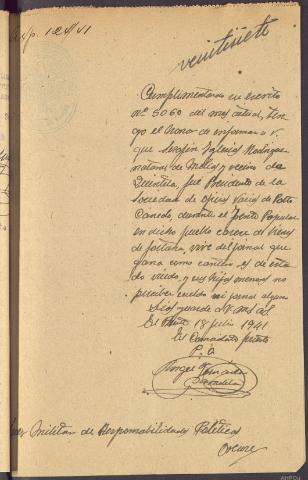 veintisiete
Cumplimentando su escrito
nº 5060 del mes actual, ten-
go el honor de informar a V.
que Serafin Iglesias Rodriguez
natural de Melias y vecino de
Quintela, fué Presidente de la
Sociedad de Oficios Varios de
Canedo, durante el Frente Popular
en dicho pueblo carece de bienes
de fortuna, vive del jornal que
gana como cantero es de esta-
do viudo, y sus hijos menores no
perciben sueldo ni jornal alguno
Dios guarde a V. m.s a.s
El 18 julio 1941
El Comandante puesto
P. A.
Angel
Juez Militar de Responsabilidades Politicas
Orense